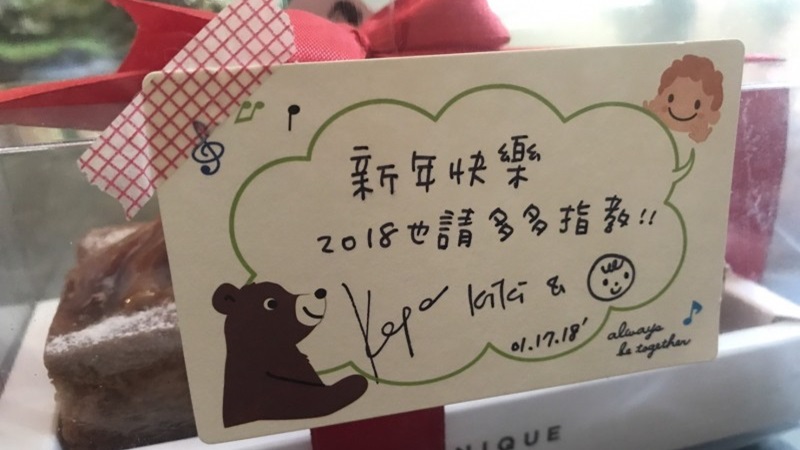 新年快樂
2018也請多多指教!!
kiki &
01.17.18'
always
be together
NIQUE